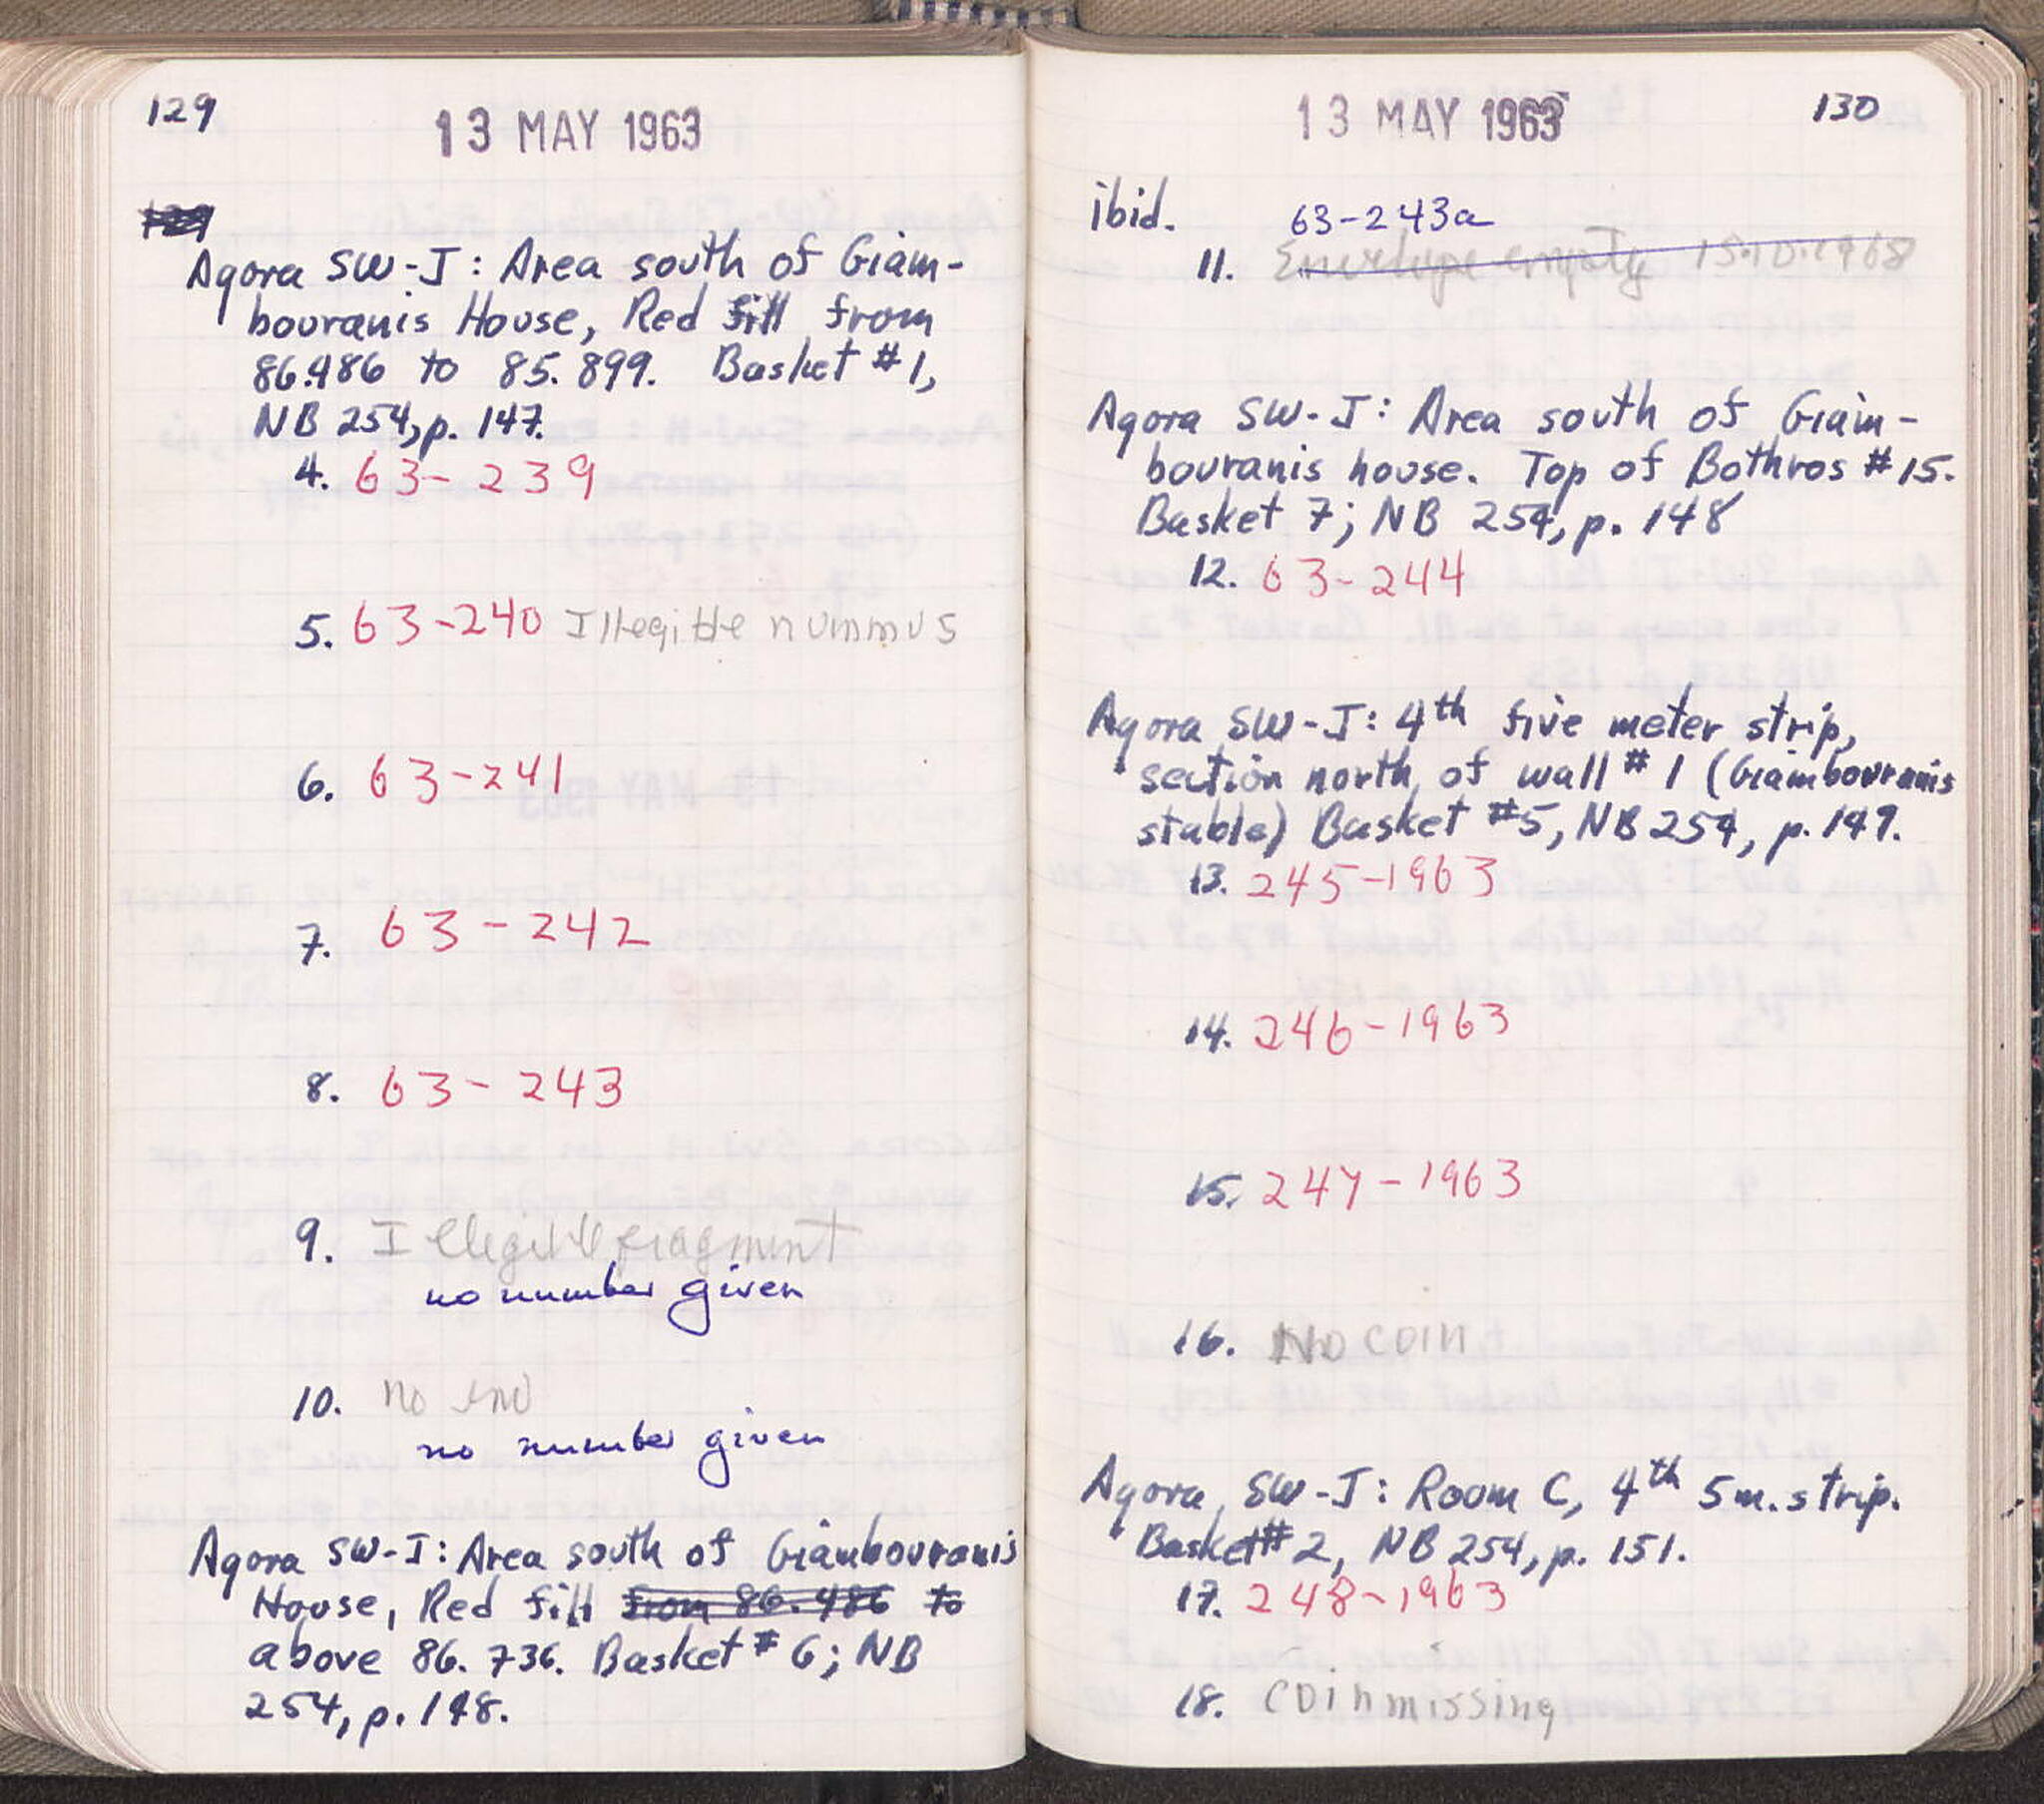 129
13 MAY 1963
Agora SW-J: Area south of Giam-
bouranis House, Red fill from
86.486 to 85.899. Basket #1,
NB 254, p. 147.
4. 63-239
5. 63-240 Illegible nummus
6. 63-241
7. 63-242
8. 63-243
9. Illegible fragment
no number given
10. no
no number given
Agora SW-J: Area south of Giambouranis
House, Red fill from 86.486 to
above 86.736. Basket #6; NB
254, p. 148.
13 MAY 1963
130
ibid.
63-243a
11. Envelope empty 15.10.1968
Agora SW-J: Area south of Giam-
bouranis house. Top of Bothros #15.
Basket 7; NB 254, p. 148
12. 63-244
Agora SW-J: 4th five meter strip,
section north of wall #1 (Giambouranis
stable) Basket #5, NB 254, p. 149.
13. 245-1963
14. 246-1963
15. 247-1963
16. No coin
Agora SW-J: Room C, 4th 5m. strip.
Basket #2, NB 254, p. 151.
17. 248-1963
18. coin missing